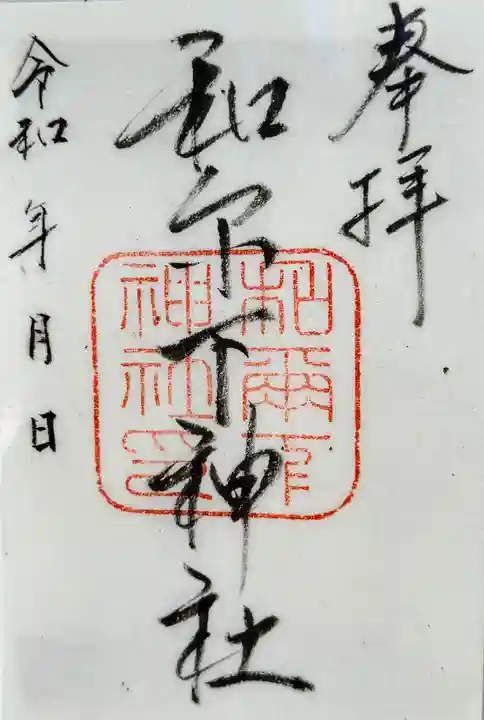 奉拝
和尓下神社
和爾下
神社印
令和 年 月 日